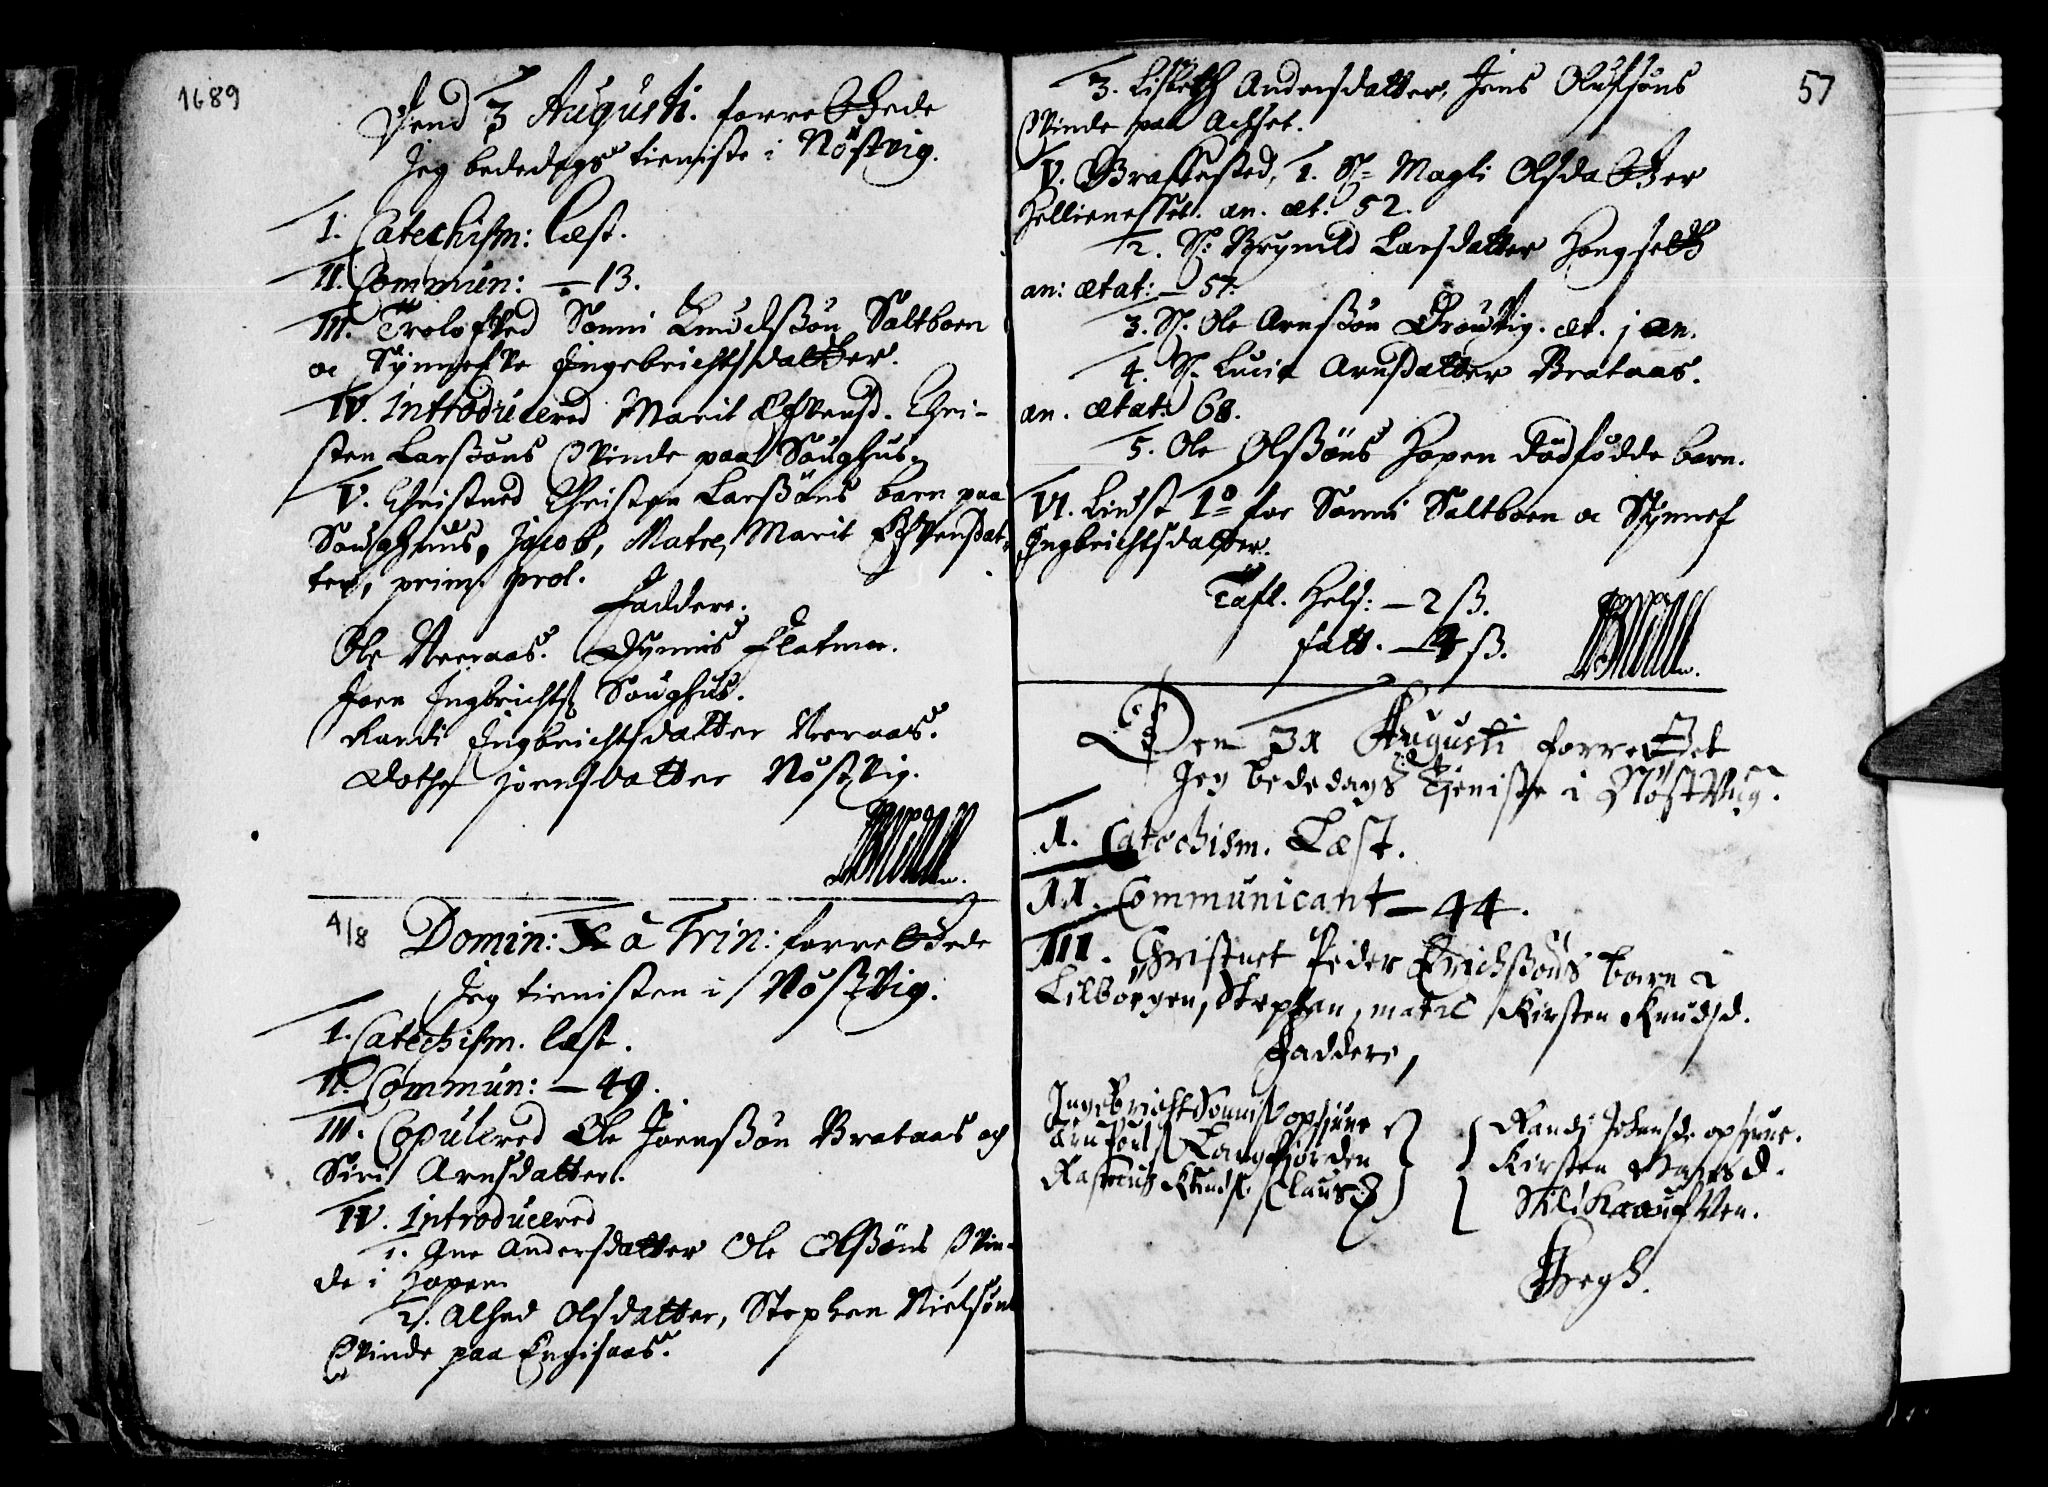 1689
Dend 3 Augusti. forrettede
Jeg bededags tieniste i Nöstvig.
I. Catechism: læst.
II. Commun: — 13.
III. Trolofved Sonni Knudsßøn Saltboen
oc Synnefve Ingebrichtsdatter.
IV. Introducered Marit Estensd. Chri-
sten Larsßøns Qvinde paa Soughus.
V. Christned Christen Larsßøns barn paa
Soughuus, Jacob, Matre, Marit Estensdat-
ter, prim. prol.
Faddere.
Ole Neeraas. Dynnis Flatmo.
Joen Ingbrichts. Soughus.
Randi Ingbrichtsdatter Neeraas.
Dothe Joensdatter Nöstvig.
4/8 Domin: X à Trin: forrettede
Jeg tienisten i Nöstvig.
I. Catechism. læst.
II. Commun: — 49.
III. Copulered Ole Joensßøn Brataas og
Siri Arnsdatter.
IV. Introducered
1. Ane Andersdatter Ole Olsßøns Qvin-
de i Hopen
2. Alhed Olsdatter, Stephen Nielsøns
Qvinde paa Engisaas.
57
3. Lisbeth Andersdatter, Jens Olufsøns
Qvinde paa Achset.
V. Graffested, 1. S. Magli Olsdatter
Hellienesset. an. æt. 52.
2. S. Brynild Larsdatter Hougseth
an: ætat: — 57.
3. S. Ole Arnsßøn Grøutig. æt. j an.
4. S. Lucia Arnsdatter Brataas.
an. ætat: 68.
5. Ole Olsßøns Hopen dödfödde barn.
VI. Liust 1º for Sonni Saltboen oc Synnef
Ingbrichtsdatter.
Tafl. Hels: — 2 ß.
fatt. — 4 ß.
Den 31 Augusti forrettet
Jeg bededags Tjeniste i Nöstvig.
I. Catechism. Læst.
II. Communicant — 44.
III. Christnet Peder Erichsßøns barn i
Lilborgen, Stephan, matre Kirsten Knudsd.
Faddere,
Ingebricht Sonnis. opsiune
Arnfins. Langfiorden
Rasmus Knuds. Claus.
Randi Johansd. opsiune.
Kirsten
Sili